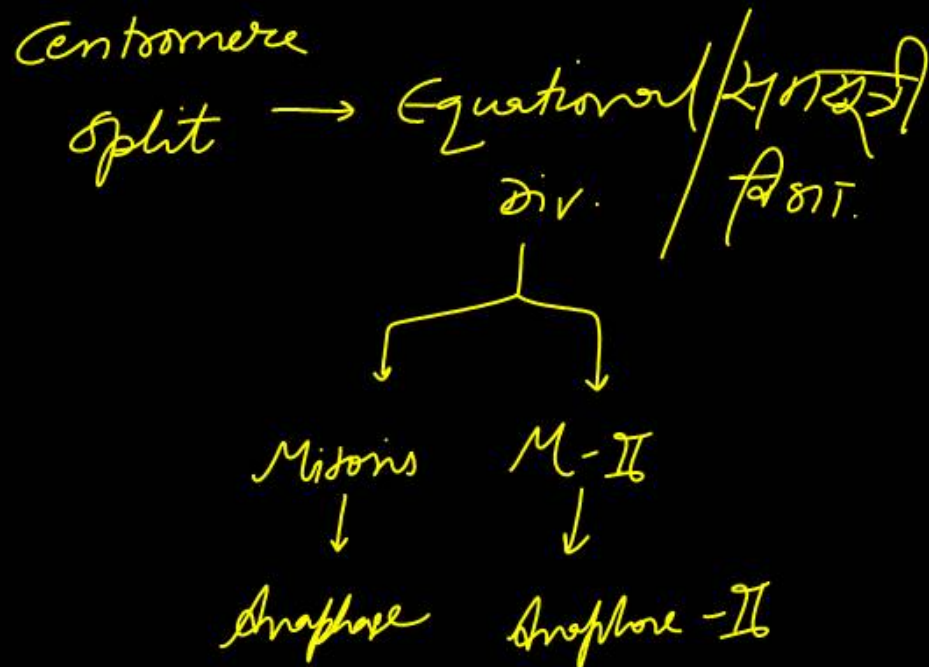 Centromere
Split → Equational / समसूत्री
Div. / विभा.
Mitosis M-II
Anaphase Anaphase-II